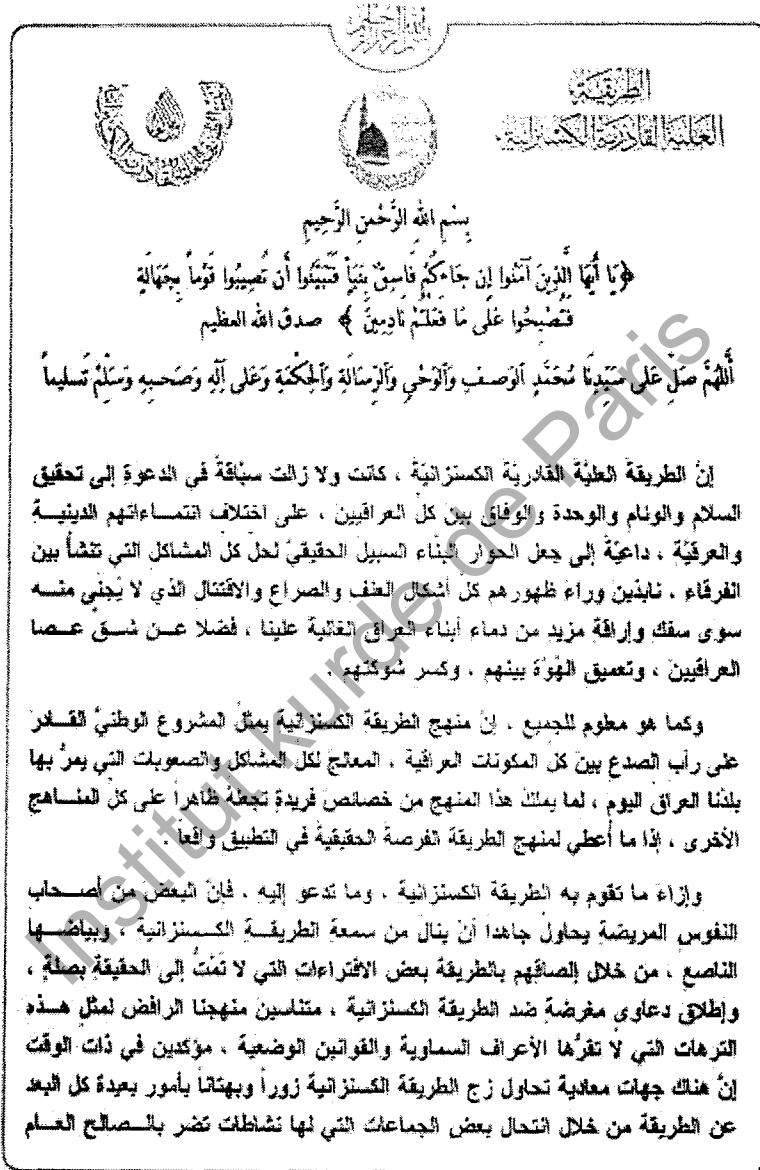 الطريقة
العلية القادرية الكسنزانية
بِسْمِ اللهِ الرَّحْمنِ الرَّحِيمِ
﴿يَا أَيُّهَا الَّذِينَ آمَنُوا إِن جَاءَكُمْ فَاسِقٌ بِنَبَأٍ فَتَبَيَّنُوا أَن تُصِيبُوا قَوْماً بِجَهَالَةٍ
فَتُصْبِحُوا عَلَى مَا فَعَلْتُمْ نَادِمِينَ﴾ صدق الله العظيم
أَللهُمَّ صَلِّ عَلى سَيِّدِنَا مُحَمَّدٍ الوَصفِ وَالْوَحْيِ وَالرِّسَالَةِ وَالْحِكْمَةِ وَعَلى آلِهِ وَصَحبِهِ وَسَلِّمْ تَسليماً
إنَّ الطريقة العليّة القادريّة الكسنزانيّة ، كانت ولا زالت سبّاقةً في الدعوةِ إلى تحقيق
السلام والوئام والوحدة والوفاق بين كلّ العراقيين ، على اختلاف انتمـاءاتهم الدينيـة
والعرقيّة ، داعيّةً إلى جعل الحوار البنّاء السبيل الحقيقيّ لحلّ كلّ المشاكل التي تنشأ بين
الفرقاء ، نابذين وراءَ ظهورهم كلّ أشكال العنف والصراع والاقتتال الذي لا يُجنى منـه
سوى سفك وإراقة مزيد من دماء أبناء العراق الغالية علينا ، فضلا عـن شـقّ عـصا
العراقيين ، وتعميق الهُوّة بينهم ، وكسر شوكتهم .
وكما هو معلوم للجميع ، إنّ منهج الطريقة الكسنزانية يمثلُ المشروع الوطنيّ القـادر
على رأب الصدع بين كلّ المكونات العراقية ، المعالج لكل المشاكل والصعوبات التي يمرُّ بها
بلدُنا العراق اليوم ، لما يملكُ هذا المنهج من خصائص فريدةٍ تجعلهُ ظاهراً على كلّ المنـاهج
الأخرى ، إذا ما أعطي لمنهج الطريقة الفرصة الحقيقيةُ في التطبيق واقعاً .
وإزاءَ ما تقوم به الطريقة الكسنزانية ، وما تدعو إليه ، فإنّ البعض من أصـحاب
النفوس المريضةِ يحاولُ جاهداً أنْ ينال من سمعة الطريقـة الكـسنزانية ، وبياضـها
الناصع ، من خلال إلصاقهم بالطريقة بعض الافتراءات التي لا تَمُتُّ إلى الحقيقة بصلةٍ ،
وإطلاق دعاوى مغرضةٍ ضد الطريقة الكسنزانية ، متناسين منهجنا الرافض لمثل هـذه
الترهات التي لا تقرُّها الأعراف السماوية والقوانين الوضعية ، مؤكدين في ذات الوقت
إنَّ هناك جهات معادية تحاول زج الطريقة الكسنزانية زوراً وبهتاناً بأمور بعيدة كل البعد
عن الطريقة من خلال انتحال بعض الجماعات التي لها نشاطات تضر بالـصالح العـام
Institut kurde de Paris